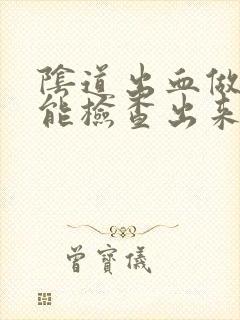 陰道出血做
能檢查出来
曾寶儀